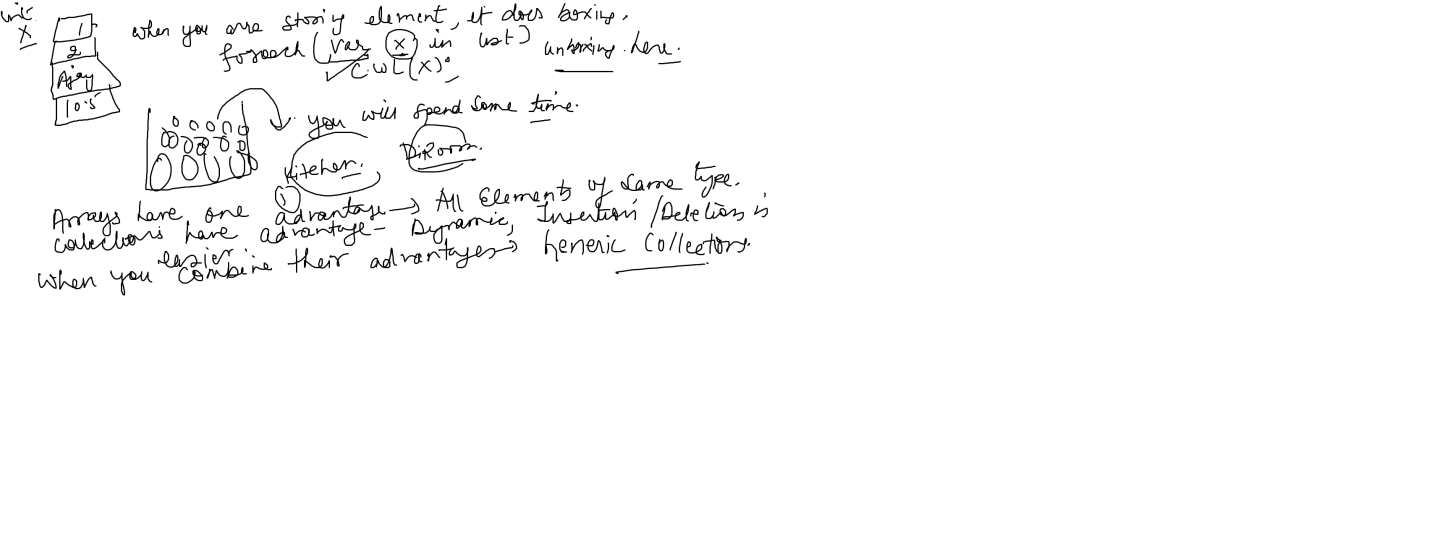 X
1
2
Ajay
10.5
when you are storing element, it does boxing.
foreach (var x in list) unboxing here.
C.WL(X);
you will spend some time.
Kitchen. Di.Room.
1
Arrays have one advantage → All Elements of same type.
Collections have advantage - Dynamic, Insertion/Deletion is
easier
When you combine their advantages → Generic Collections.